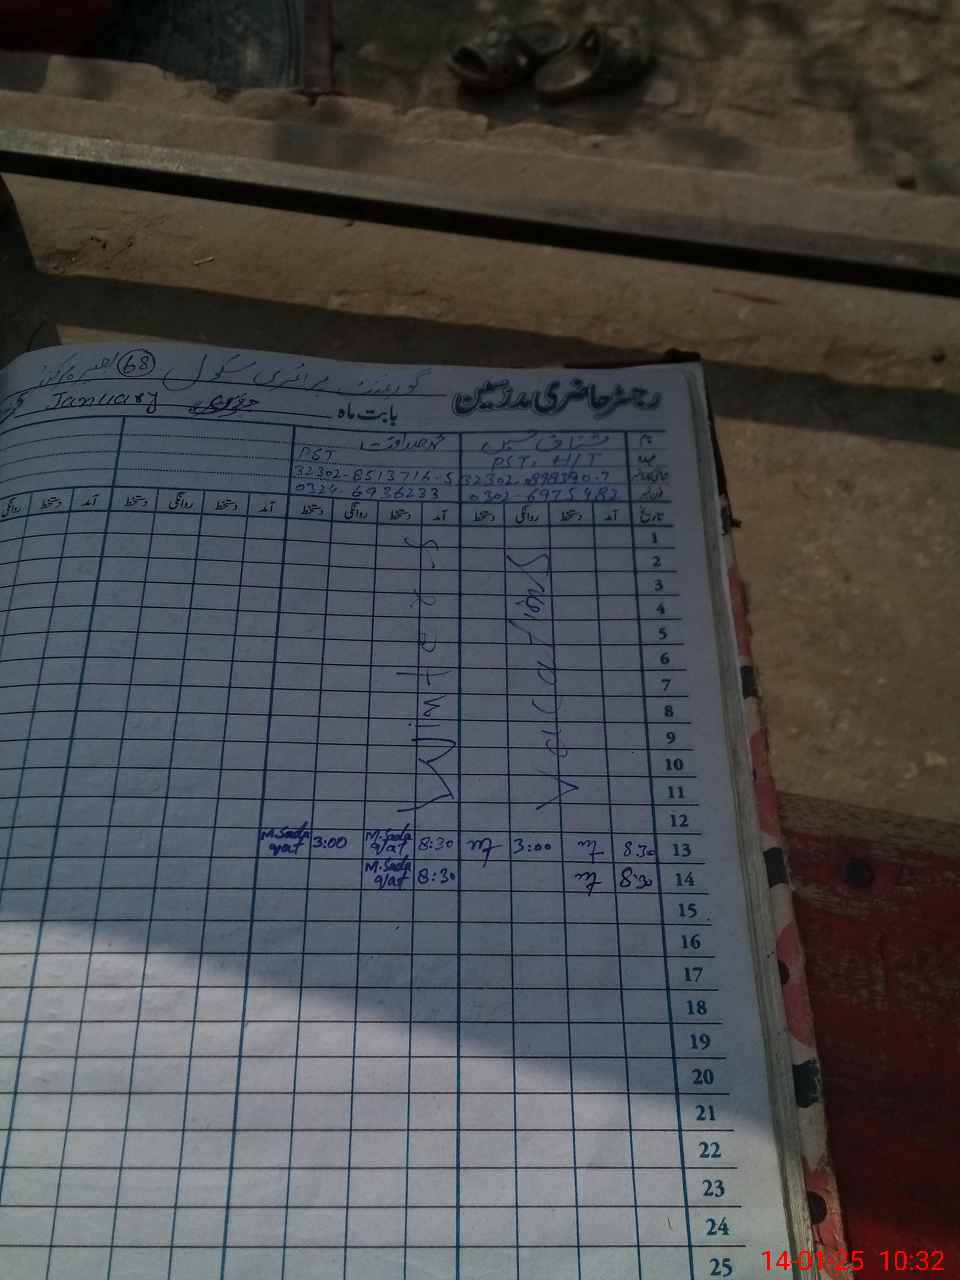 رجسٹر حاضری مدرسین گورنمنٹ پرائمری سکول 68
بابت ماہ جنوری January
نام مشتاق حسین محمد صداقت
عہدہ PST, H/T PST
32302-8513716-5
0302-6975482 0324-6936233
تاریخ آمد دستخط روانگی دستخط آمد دستخط روانگی دستخط آمد دستخط روانگی دستخط آمد دستخط روانگی
1
2
3
4
5
6
7
8
9
10
11
12
Winter
13 8:30 3:00 8:30 M.Sada qat 3:00 M.Sada qat
14 8:30 8:30 M.Sada qat
15
16
17
18
19
20
21
22
23
24
25
14-01-25 10:32